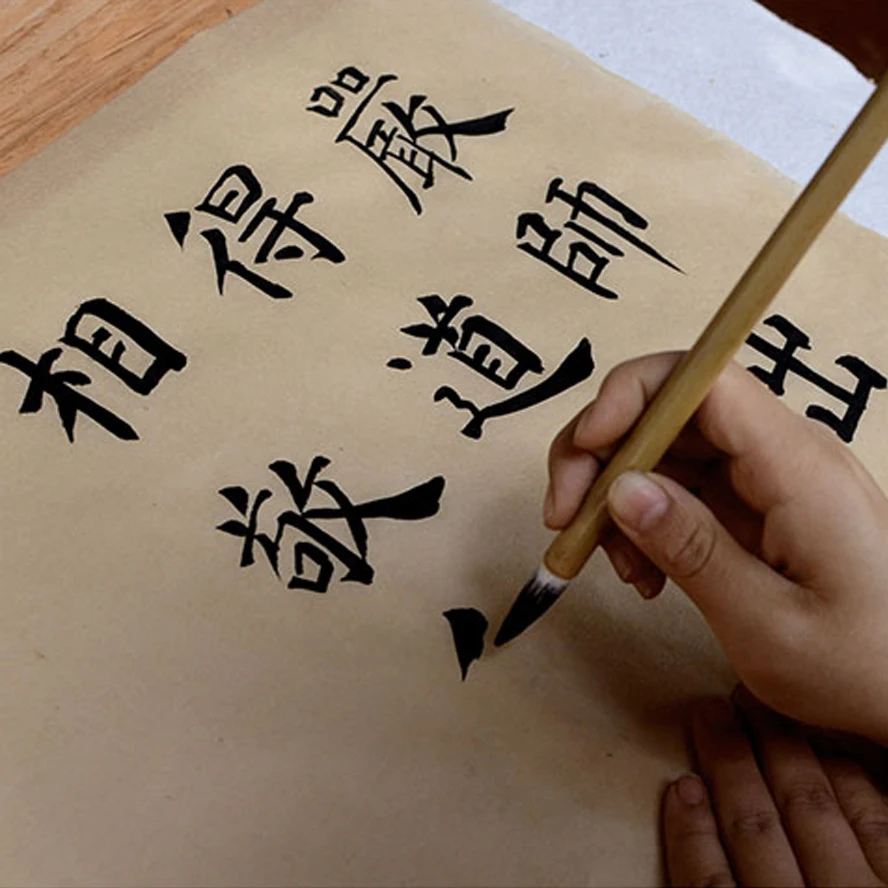 嚴師出
得道
相敬